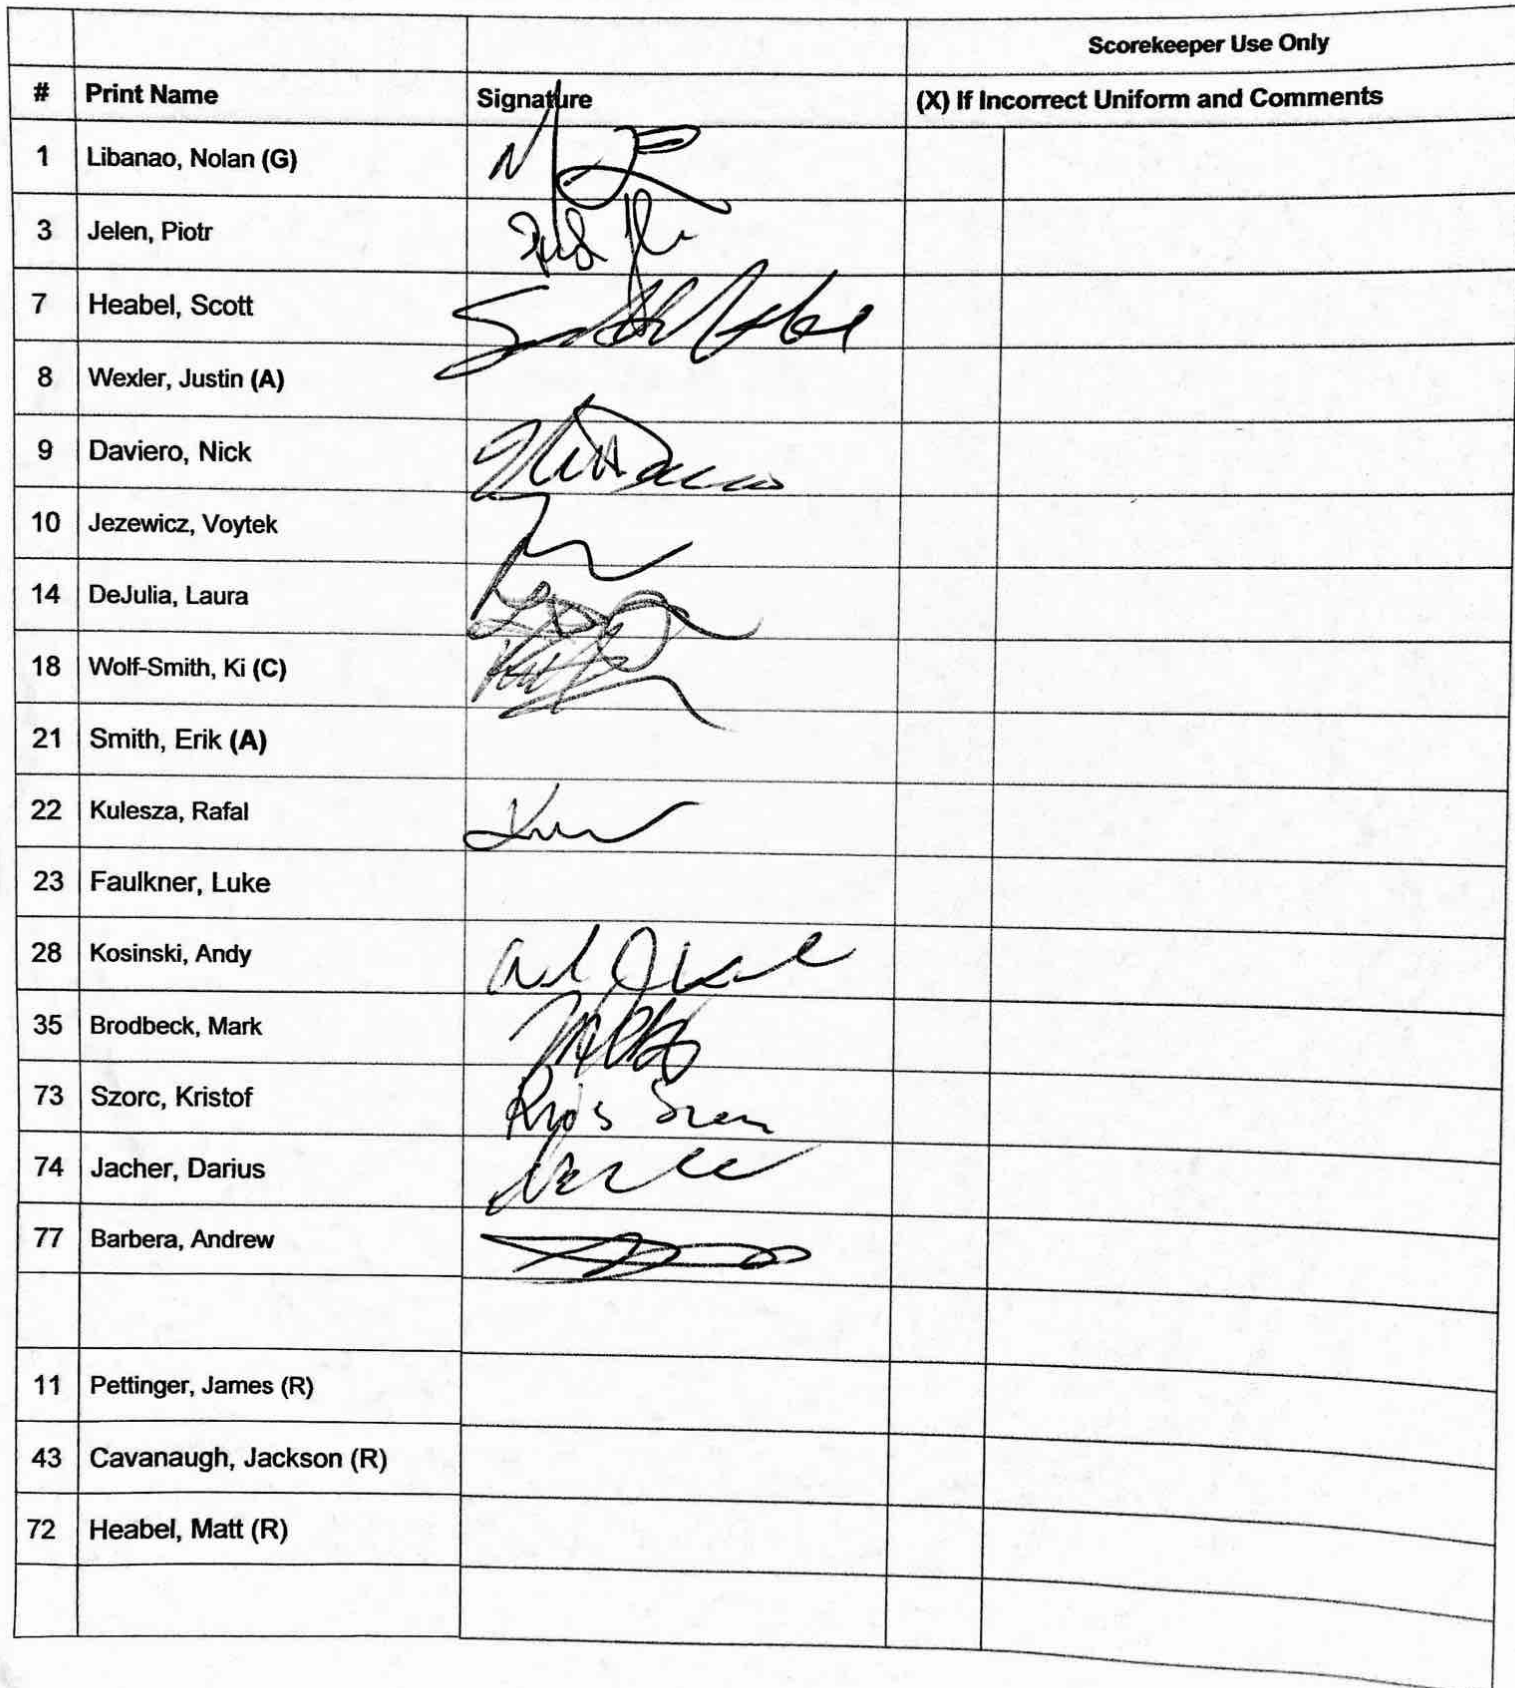 Scorekeeper Use Only
# Print Name Signature (X) If Incorrect Uniform and Comments
1 Libanao, Nolan (G)
3 Jelen, Piotr
7 Heabel, Scott
8 Wexler, Justin (A)
9 Daviero, Nick
10 Jezewicz, Voytek
14 DeJulia, Laura
18 Wolf-Smith, Ki (C)
21 Smith, Erik (A)
22 Kulesza, Rafal
23 Faulkner, Luke
28 Kosinski, Andy
35 Brodbeck, Mark
73 Szorc, Kristof
74 Jacher, Darius
77 Barbera, Andrew
11 Pettinger, James (R)
43 Cavanaugh, Jackson (R)
72 Heabel, Matt (R)